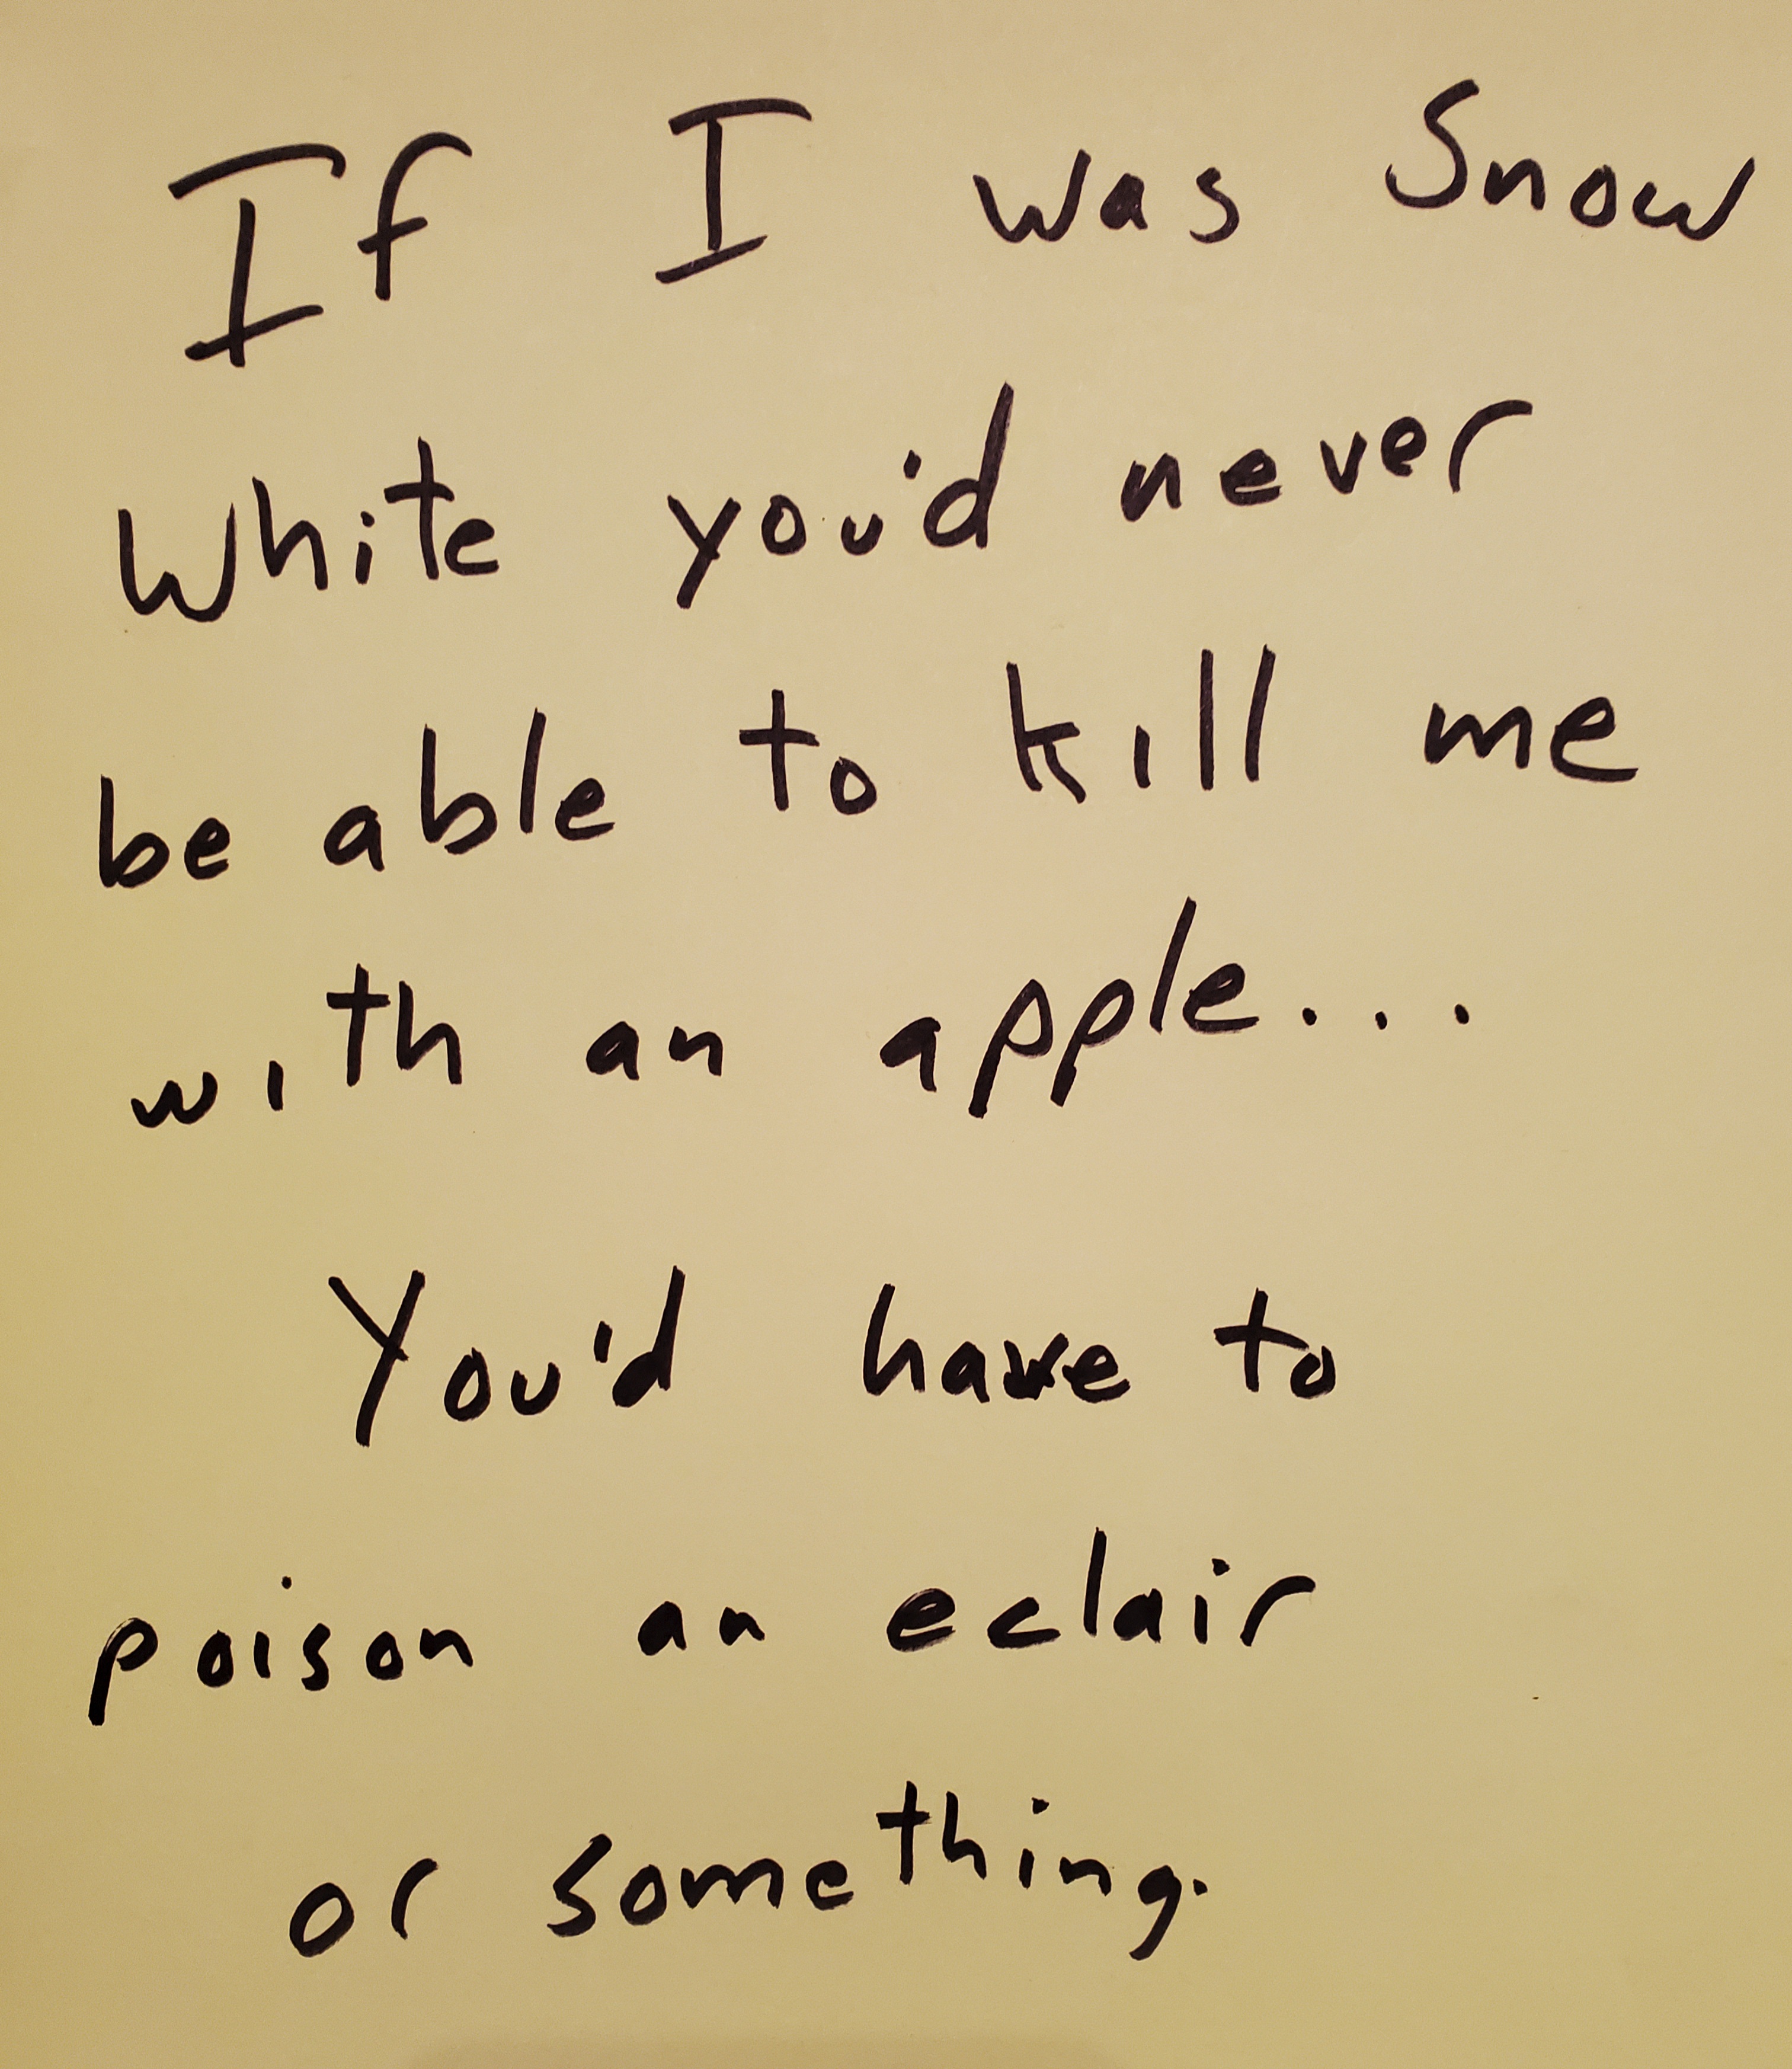 If I was Snow
White you'd never
be able to kill me
with an apple...
You'd have to
poison an eclair
or something.